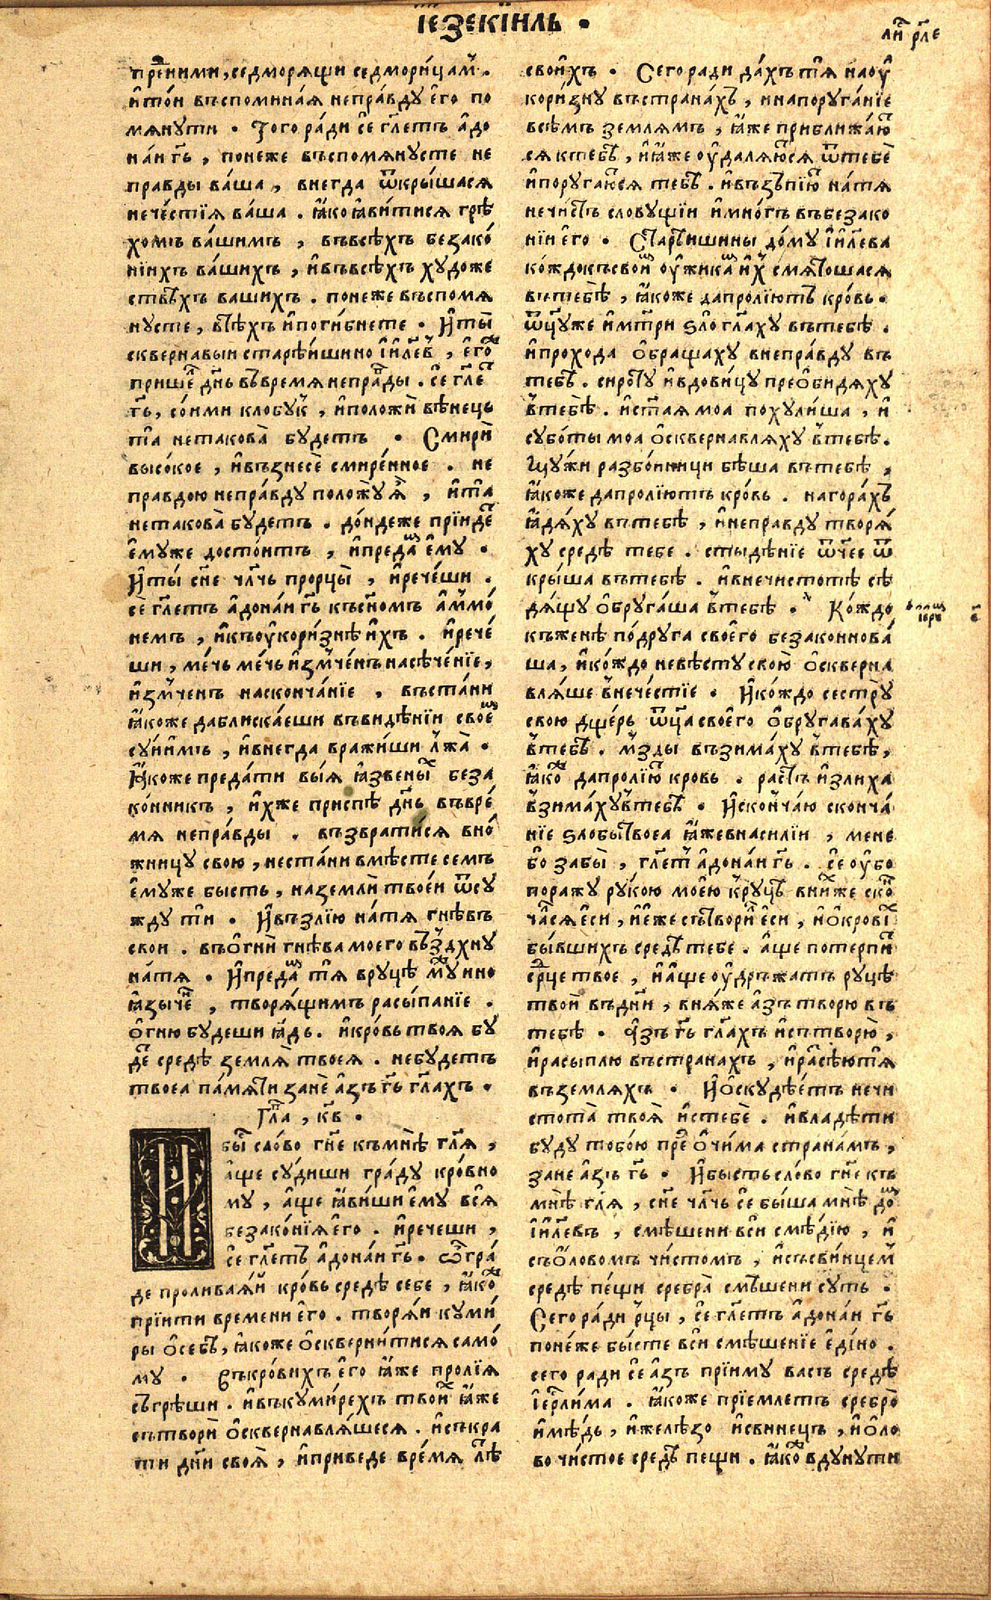 іезекїиль •
ли́ рл҃е
пре́ ними, седморя́щи седмори́цам .
и҆то́и въспомина́я непра́вду е҆го̀ по
мянути • Того ра́ди се̑ гл҃етъ а҆до
наи гь҃ , понеже въспомянусте не
правды ва́ша , внегда ѿкры́шася
нече́стїя ва́ша . ꙗ҆ко ꙗ҆ви́тися грѣ
хомъ ва́шимъ , въвсѣ́хъ безако́
нїихъ ва́шихъ , и҆въвсѣ́хъ художе
ствѣхъ вашихъ . понеже въспомя
нусте , въ сѣ́хъ и҆поги́бнете • И҆ ты̀
сквернавыи старѣ́ишино і҆и҃левъ , е҆го́
прише́ дн҃ь въ время непра́ды . се̑ гл҃е
гь҃ , со́ими клобук , и҆положѝ вѣнець
та̀ нетакова̀ будетъ • Смирѝ
высо́кое , и҆възнесѐ смире́нное . не
правдою непра́вду положу̀ я҆̀ , и҆ та̀
нетакова̀ будетъ . до́ндеже прїиде́
е҆муже досто́итъ , и҆преда́м е҆му •
И҆ ты̀ сн҃е чл҃чь прорцы̀ , и҆рече́ши .
се̑ гл҃етъ а҆донаи гь҃ къ сн҃омъ а҆ммо́
немъ , и҆къ оу҆кори́знѣ и҆́хъ . и҆рече́
ши , ме́чь ме́чь и҆зм҃че́нъ насѣче́нїе ,
и҆зм҃ченъ наскончанїе , въста́ни
ꙗ҆коже даблиска́еши въвидѣ́нїи своѐм
су́нимъ , и҆внегда вражи́ши лжа̀ •
Ꙗ҆́коже преда́ти выя ꙗ҆звены́х беза
ко́нникъ , и҆́хже приспѣ̀ дн҃ь въвре́
мя непра́вды . възврати́ся вно́
жницу свою , нестани вмѣ́сте семъ
е҆муже бысть , наземлѝ твое́и ѿсу
жду тѝ • И҆възлїю̀ натя гнѣвъ
свои . въ огнѝ гнѣва моего въз̾дхну
на́тя • И҆преда́м тя вруцѣ му́жи но
ꙗ҆зыче́ , творя́щимъ расы́панїе .
о҆гню будеши ꙗ҆́дь . и҆кро́вь твоя бу
де́ средѣ земля̀ твоея . небудетъ
твоеа па́мяти занѐ а҆зъ гь҃ гл҃ахъ •
Гл҃а , к҃в •
бы́ сло́во гн҃е къмнѣ гл҃я ,
а҆́ще су́диши гра́ду кро́вно
му , а҆́ще ꙗ҆ви́ши е҆му вся̀
безако́нїя е҆го . и҆речеши ,
се̑ гл҃етъ а҆дона́и гь҃ • Ѽ гра́
де пролива́яи кро́вь средѣ себе , ꙗ҆ко
прїити времени е҆го . творя́и куми́
ры о҆ себѣ , ꙗ҆коже о҆скверни́тися само́
му • Въ кро́вихъ е҆го ꙗ҆́же пролїя
съгрѣши . и҆въкуми́рехъ твои́х ꙗ҆́же
сътворѝ о҆сквернавля́шеся . и҆съкра
ти дн҃и своя̀ , и҆приведе вре́мя лѣ
свои́хъ • Сего ради да́хъ тя наоу҆
кори́зну въстрана́хъ , инапоруга́нїе
всѣ́мъ землямъ , ꙗ҆́же приближаю́
ся ктебѣ , и҆ꙗ҆́же оу҆даля́юся ѿ тебѐ
и҆поругаю́ся тебѣ . и҆възъпїю́ на́тя
нечи́стъ словущїи и҆мно́гъ въбезако
нїи е҆го • Старѣишины до́му і҆и҃лева
ко́ждокъсвои́м оу҆жика́м и҆́х смято́шася
вътебѣ , ꙗ҆коже дапролїютъ кро́вь .
ѿц҃у же и҆ мт҃ри ѕло̀ гл҃аху втебѣ .
и҆прохода о҆браща́ху внепра́вду въ
тебѣ . сироту и҆вдовицу преоби́дяху
в̾тебѣ . и҆ст҃ая моа похули́ша , и҆
субо́ты моа о҆сквернавля́ху в̾тебѣ .
Му́жи разбо́иници бѣ́ша въ тебѣ ,
ꙗ҆́коже дапролїю́тъ кро́вь . нагора́хъ
ꙗ҆дя́ху въ тебѣ , и҆неправду творя́
ху средѣ тебе . стыдѣ́нїе ѿчее ѿ
кры́ша въ тебѣ . и҆внечистотѣ сѣ
дя́щу о҆бруга́ша в̾тебѣ • Ко́ждо
къ женѣ по́друга своего безаконнова́
ша , и҆ко́ждо невѣсту свою̀ о҆скверна
вляше в̾нече́стїе • И҆ко́ждо сестру̀
свою дще́рь ѿц҃а своего о҆бругава́ху
в̾тебѣ . мзды възима́ху в̾тебѣ ,
ꙗ҆ко дапролїю́ кровь . расть и҆злиха
в̾зимаху в̾тебѣ • И҆сконча́ю сконча́
нїе ѕлобы твоеа ꙗ҆́же внаси́лїи , мене
бо забы̀ , гл҃еть а҆дона́и гь҃ . се̑ оу҆бо
поражу ру́кою мое́ю к̾руцѣ вни́хже ско
ча́ся е҆си , и҆е҆́же сътвори́ е҆си , и҆о҆крові́
бы́вшихъ средѣ тебе . а҆́ще потерпи́
ср҃це твое , и҆а҆́ще оу҆дръжатъ руцѣ
твои въдни , вня́же а҆́зъ творю въ
тебѣ • А҆зъ гь҃ гл҃ахъ и҆сътворю̀ ,
и҆расы́плю въстранахъ , и҆расѣ́ю тя
въ земляхъ • И҆о҆скудѣ́етъ нечи
стота̀ твоя̀ и҆с тебѐ . и҆владѣ́ти
буду тобою пре́ о҆чи́ма страна́мъ ,
зане а҆зъ гь҃ • И҆бысть сло́во гн҃е къ
мнѣ гл҃я , сн҃е чл҃чь се̑ бы́ша мнѣ до́м
і҆и҃левъ , смѣшени вси смѣ́дїю , и҆
съ о҆ловомъ чи́стомъ , и҆съсви́нцем
средѣ пе́щи сребра̀ смѣшени суть •
Сего ра́ди рц҃ы , се̑ гл҃етъ а҆дона́и гь҃
поне́же бы́сте всѝ смѣ́шенїе е҆ди́но .
сего ради се̑ а҆зъ прїиму васъ средѣ
і҆ер҃лима . ꙗ҆́коже прїемлетъ сребро̀
и҆мѣ́дь , и҆желѣ́зо и҆свинецъ , и҆о҆ло
во чи́стое средѣ пещи . ꙗ҆ко вдунути